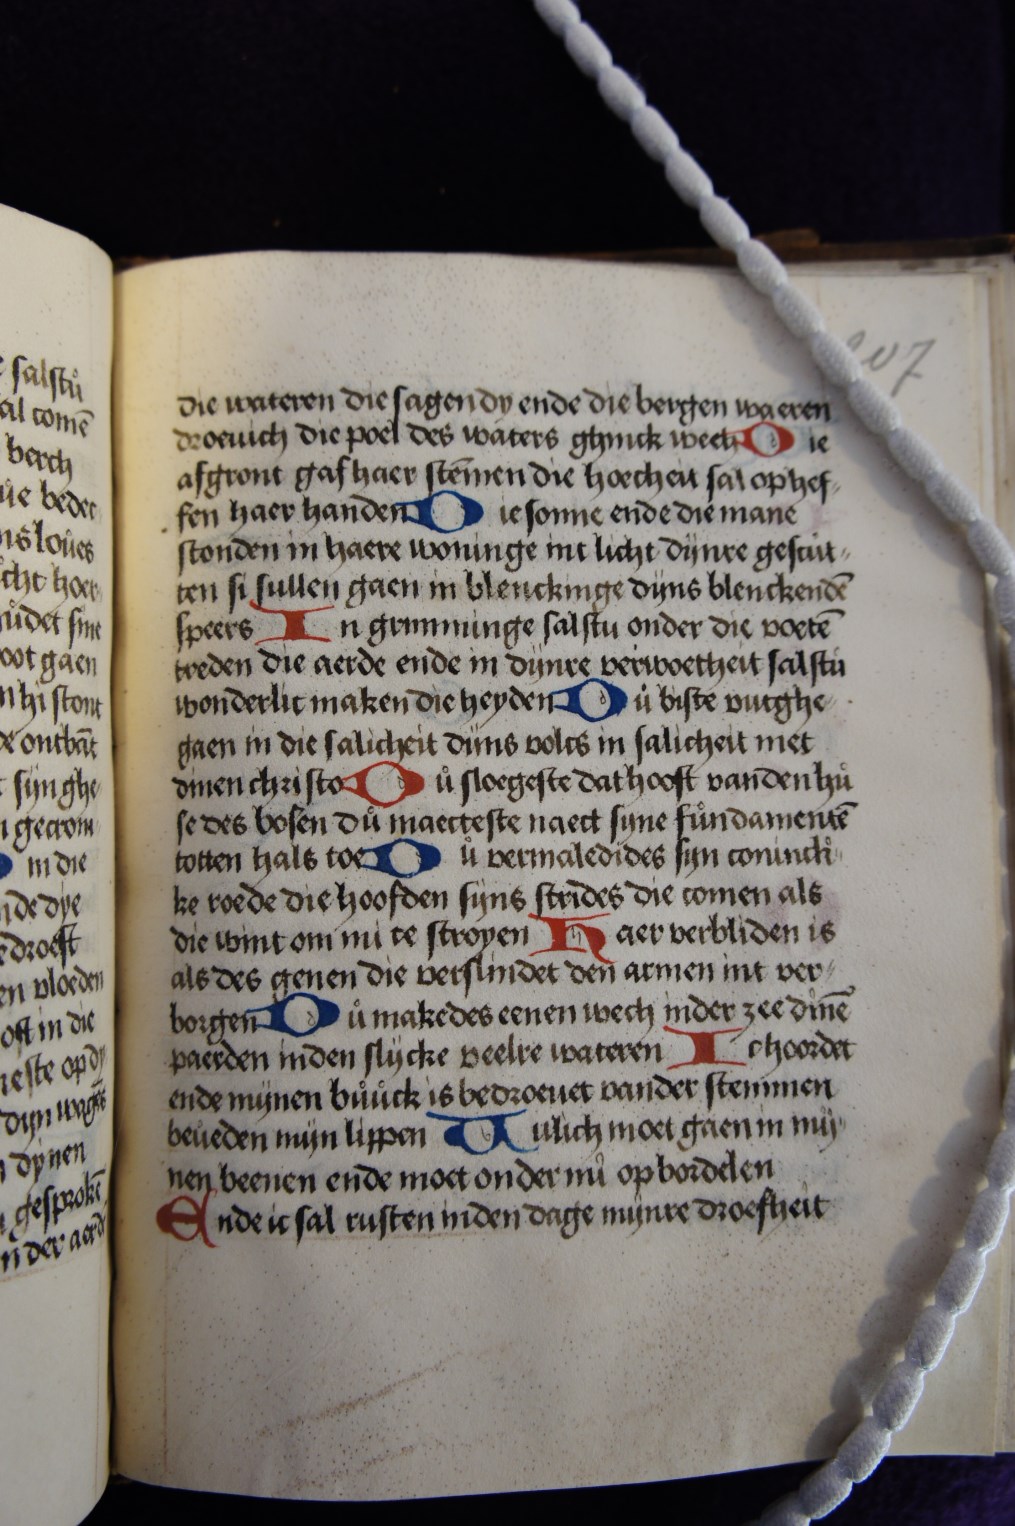 207
salstu
al comē
berch
ue bedec
ns loues
cht hoer
udet sine
oot gaen
n hi stont
de ontbāt
syn ghe
n gecrom
in die
nde dye
edroeft
en vloeden
oft in die
neste op dy
dyn wagēs
n dynen
gesprokē
n der aerd
die wateren die sagen dy ende die bergen waeren
droeuich die poel des waters ghinck wech D ie
afgront gaf haer stēmen die hoecheit sal op hef-
fen haer handen D ie sonne ende die mane
stonden in haere woninge int licht dynre gescut-
ten si sullen gaen in blenckinge dyns blenckendē
speers I n grimminge salstu onder die voetē
treden die aerde ende in dynre verwoetheit salstu
wonderlic maken die heyden D ů biste vutghe
gaen in die salicheit dyns volcs in salicheit met
dinen christo D ů sloegeste dat hooft van den hů
se des bosen Dů maecteste naect syne fůndamentē
totten hals toe D ů vermaledides syn coninckli-
ke roede die hoofden syns strides die comen als
die wint om mi te stroyen H aer verbliden is
als des genen die verslindet den armen int ver-
borgen D ů makedes eenen wech inder zee dinē
paerden inden slycke veelre wateren I c hoordet
ende mynen bůůck is bedroeuet vander stemmen
beueden myn lippen V ulich moet gaen in my
nen beenen ende moet onder mi op bordelen
E nde ic sal rusten inden dage mynre droefheit